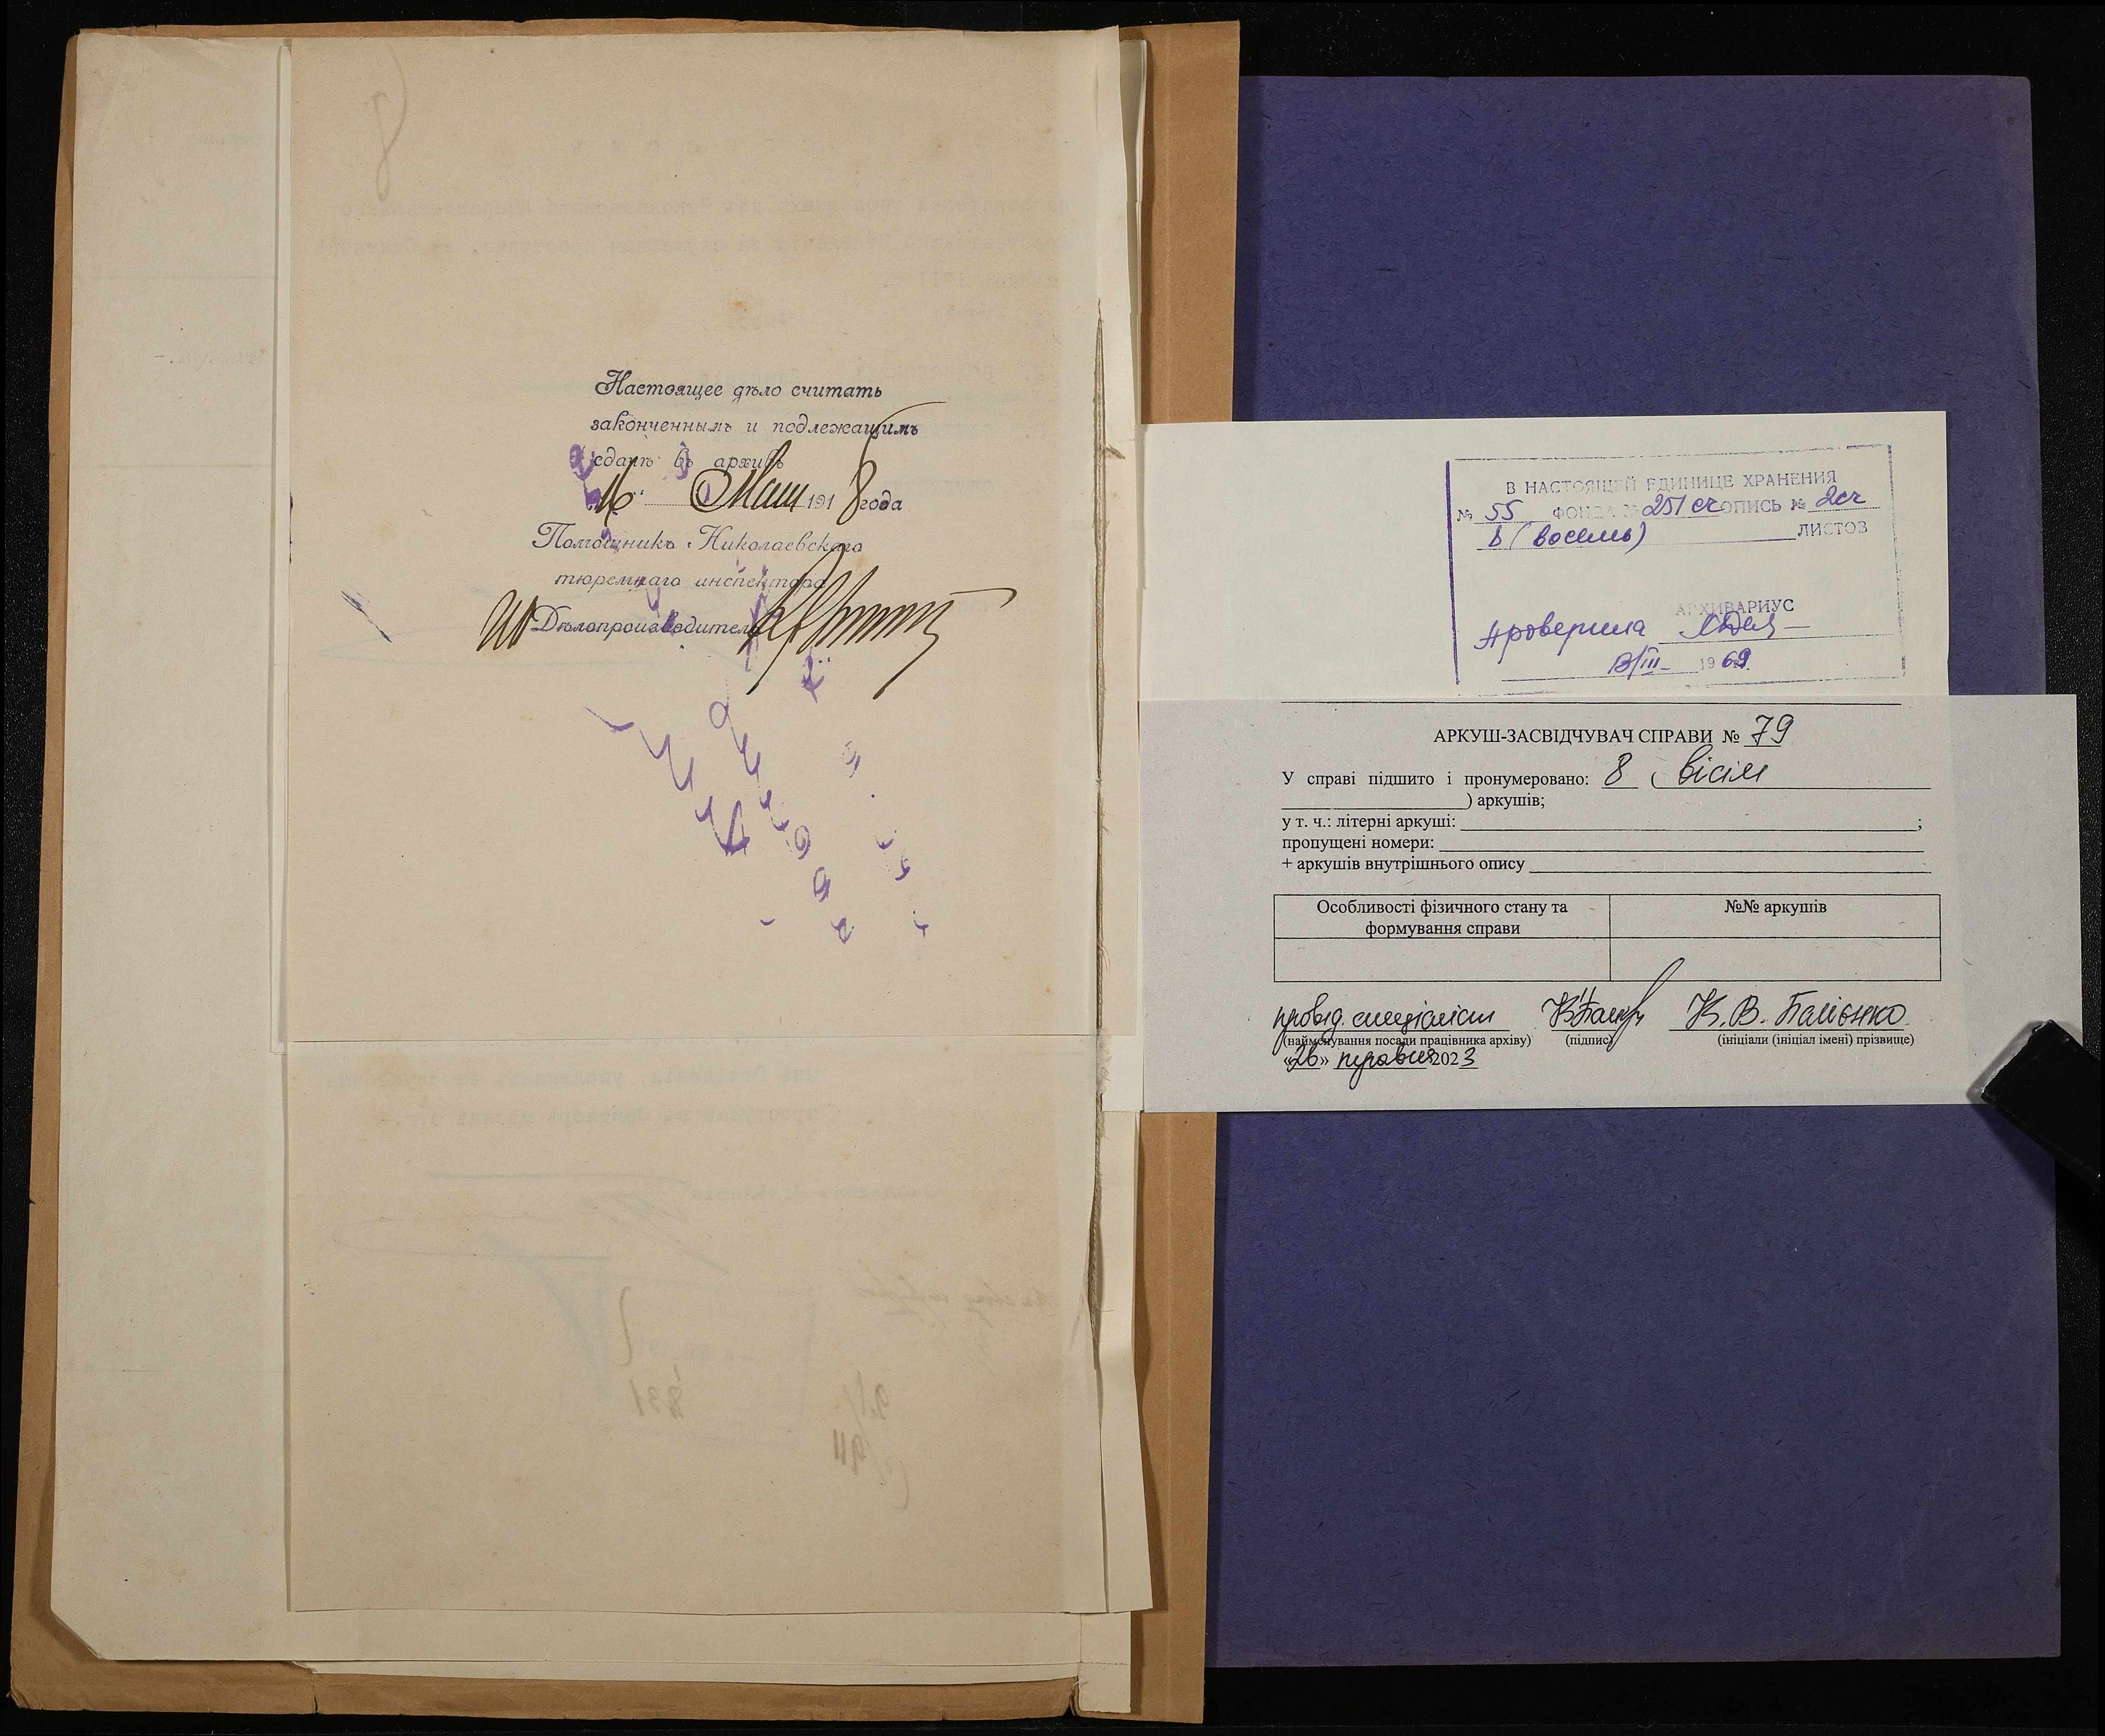 8
Настоящее дѣло считать
законченнымъ и подлежащимъ
сдачѣ въ архивъ
16 Мая 1918 года
Помощникъ Николаевскаго
тюремнаго инспектора
ИО Дѣлопроизводитель
В НАСТОЯЩЕЙ ЕДИНИЦЕ ХРАНЕНИЯ
№ 55 ФОНДА № 251 сч ОПИСЬ № 2сч
8 (восемь) ЛИСТОВ
АРХИВАРИУС
проверила
13/III 1969
АРКУШ-ЗАСВІДЧУВАЧ СПРАВИ № 79
У справі підшито і пронумеровано: 8 ( вісім
) аркушів;
у т. ч.: літерні аркуші: ;
пропущені номери:
+ аркушів внутрішнього опису
Особливості фізичного стану та
формування справи
№№ аркушів
провід. спеціаліст К.В.
(найменування посади працівника архіву) (підпис) (ініціали (ініціал імені) прізвище)
«26» травня 2023